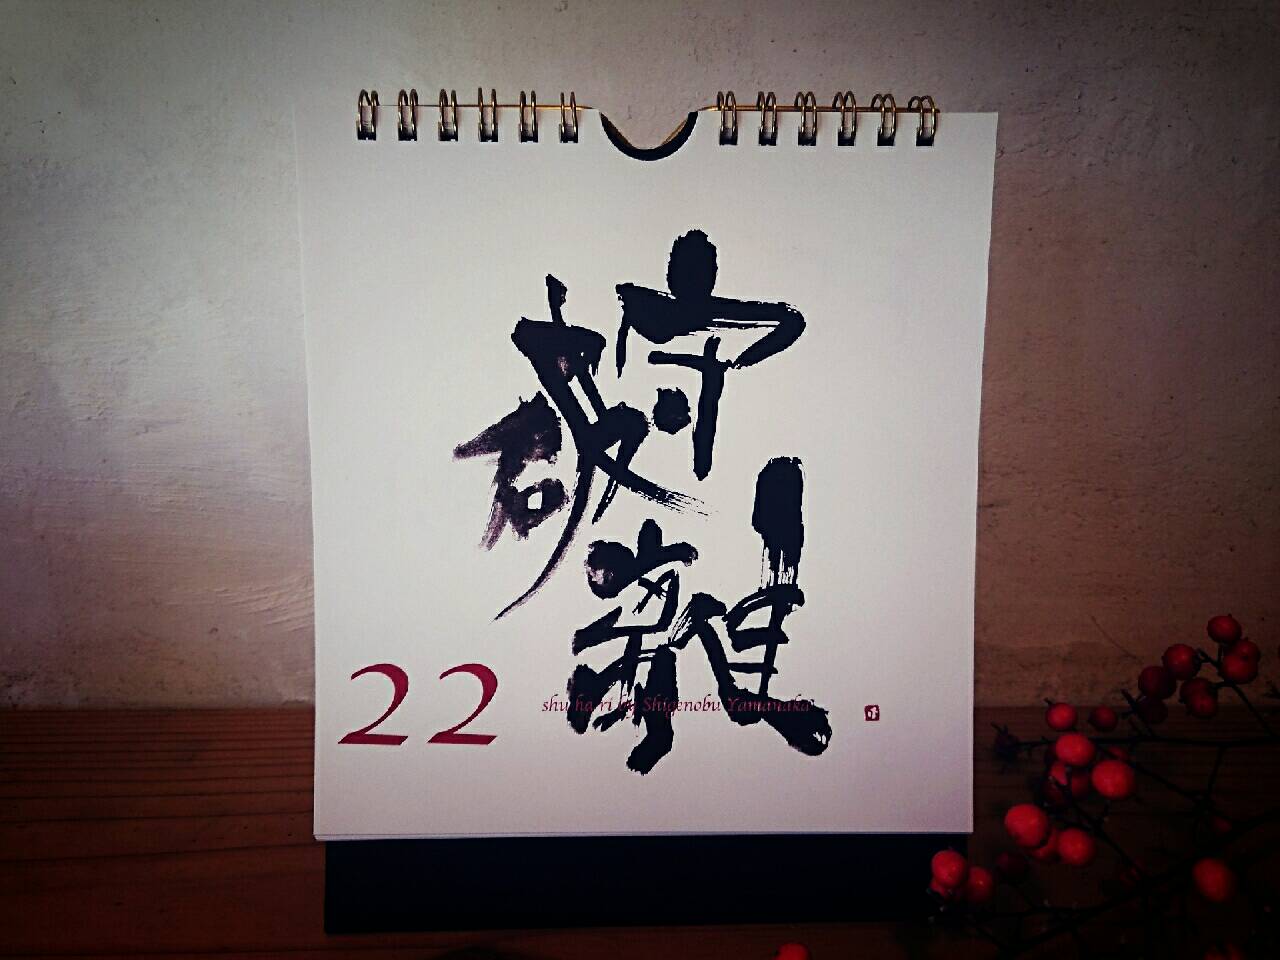 守
破
離
22
shu ha ri by Shigenobu Yamanaka